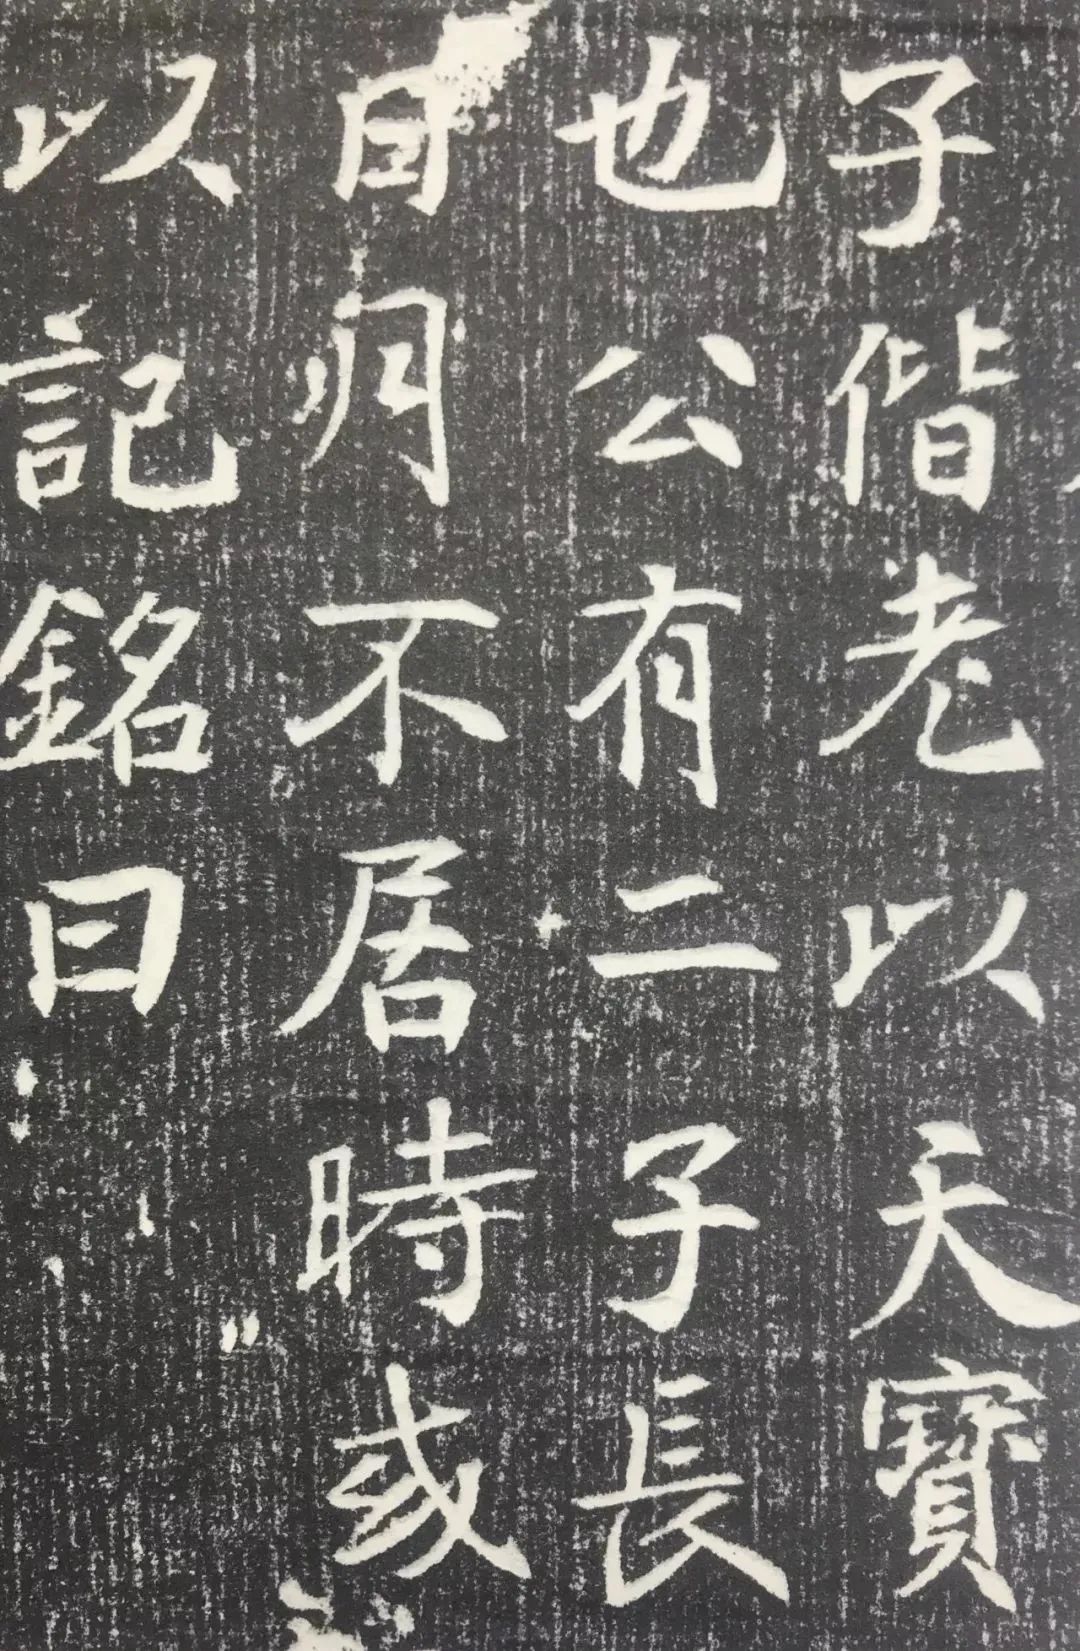 子偕老以天寶
也公有二子長
日月不居時或
以記銘曰